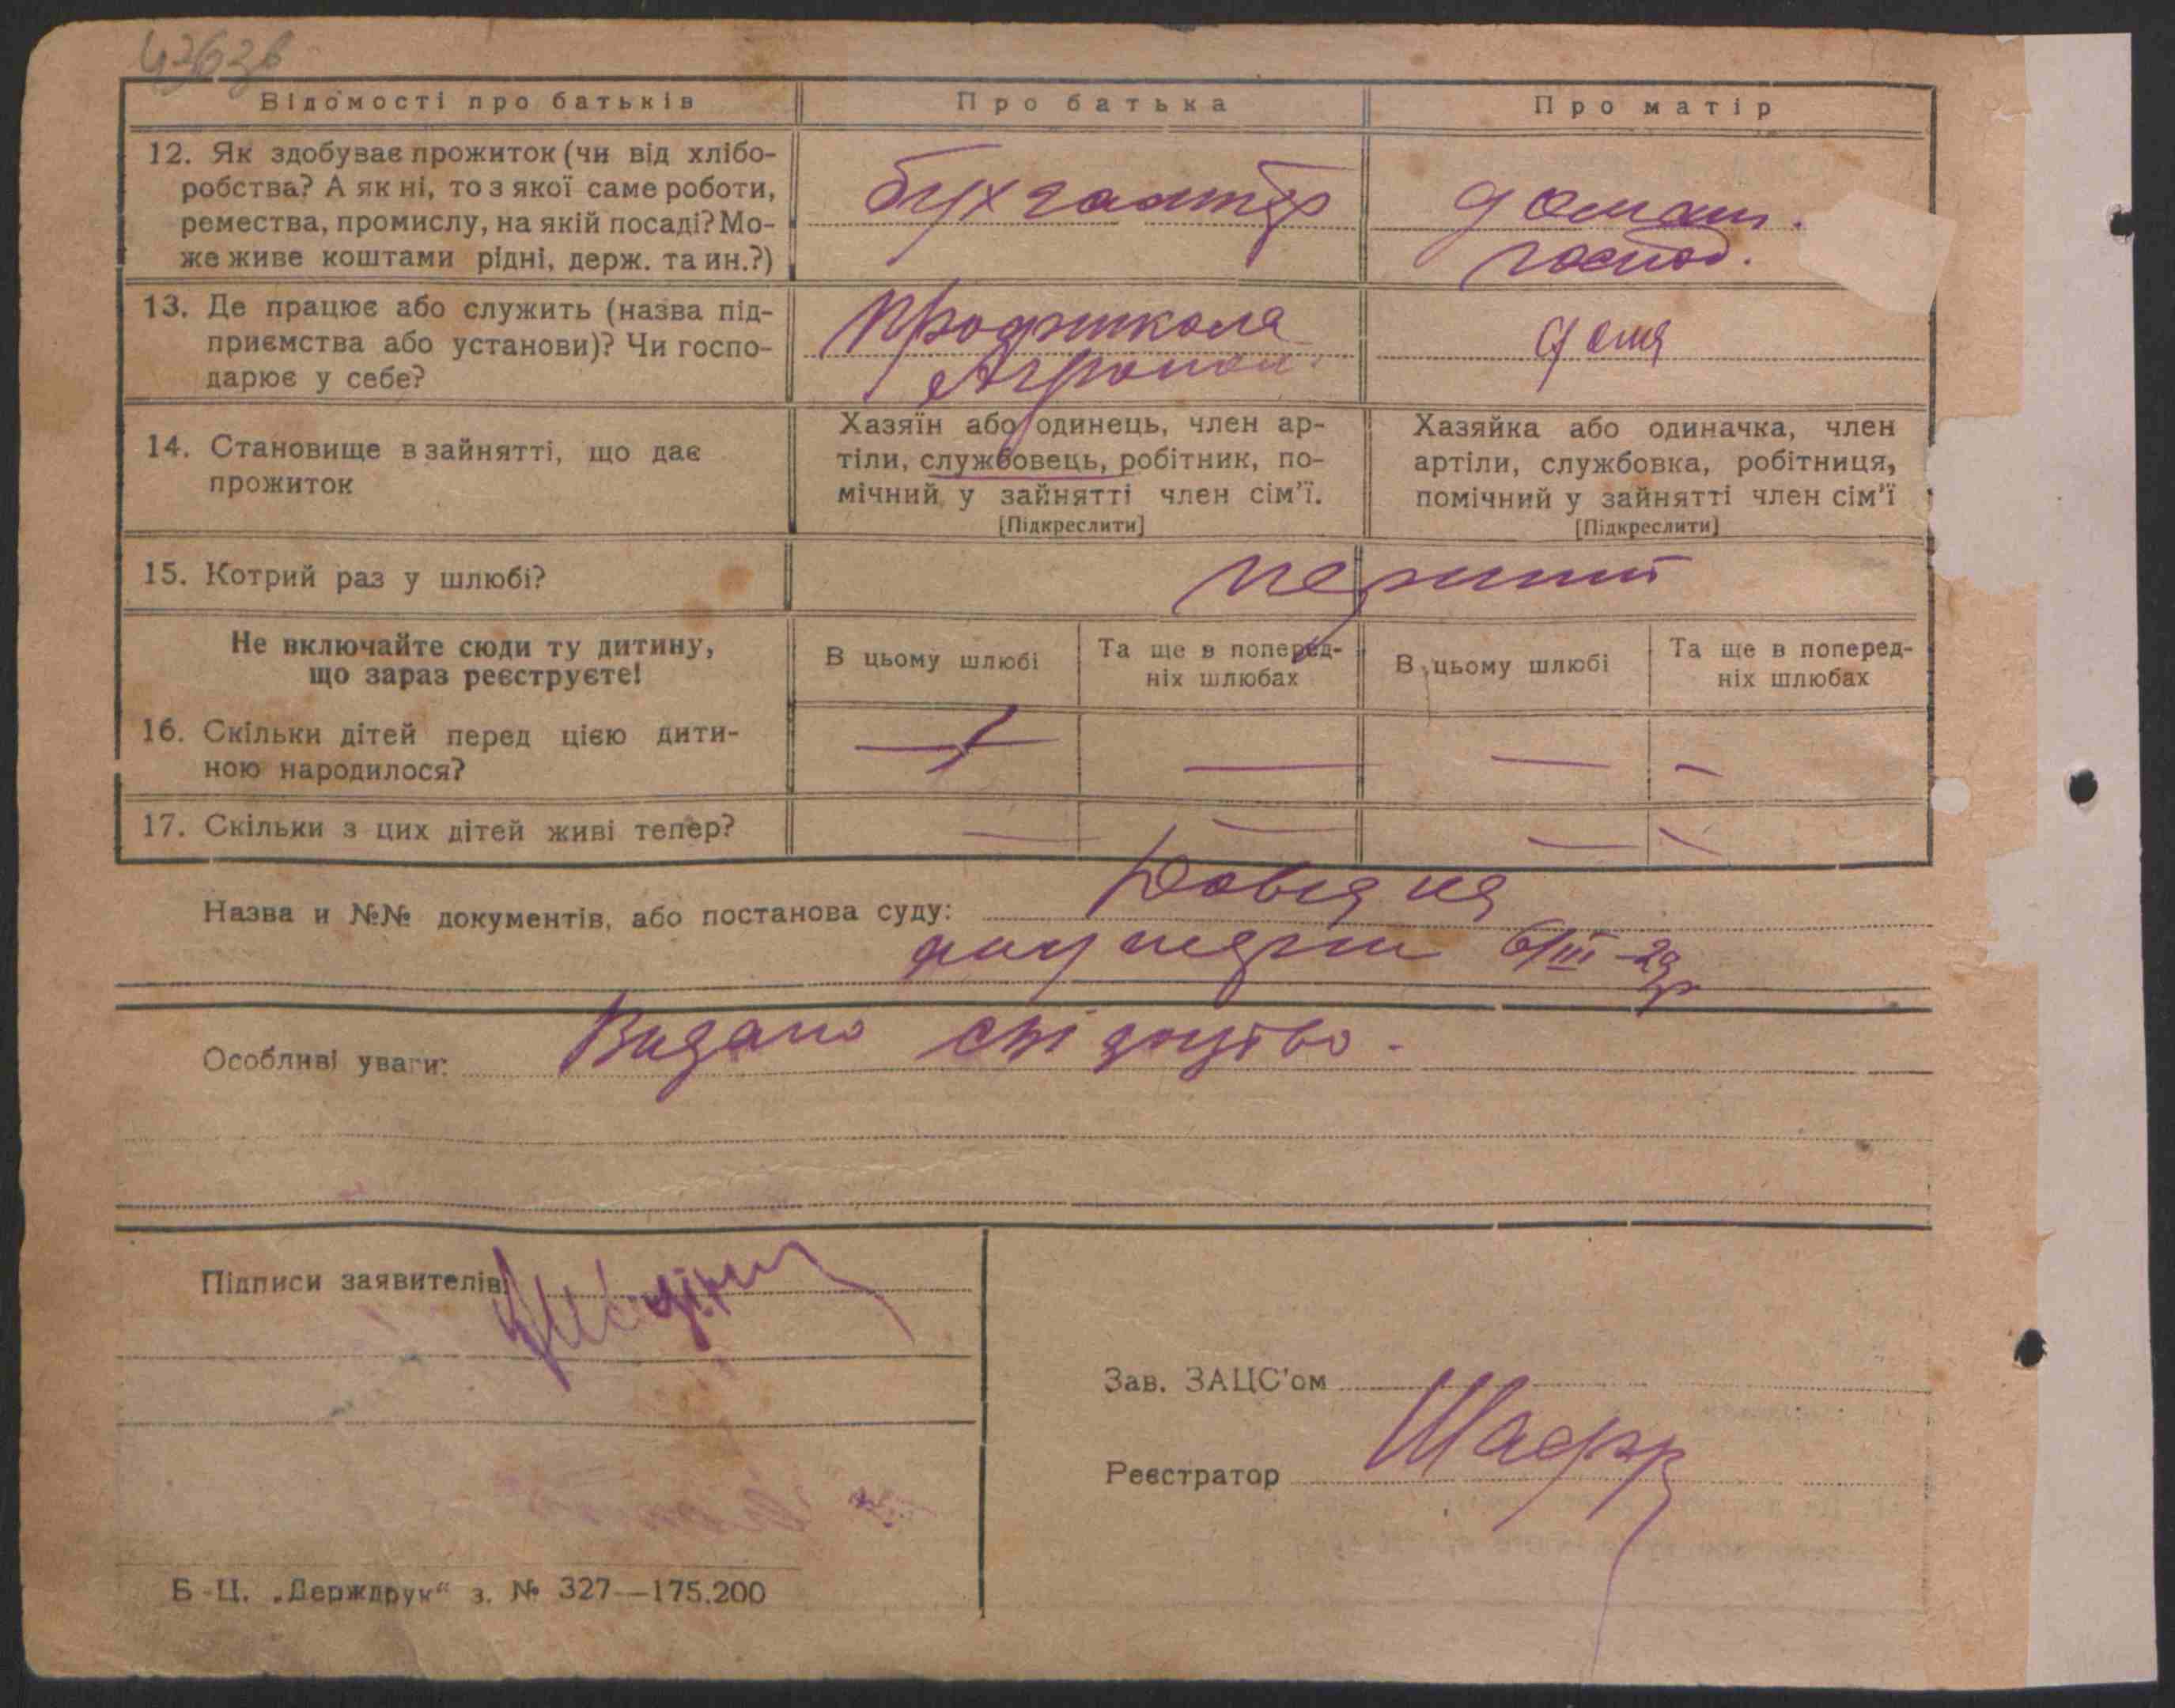 Відомості про батьків
Про батька
Про матір
12. Як здобуває прожиток (чи від хлібо-
робства? А як ні, то з якої саме роботи,
ремества, промислу, на якій посаді? Мо-
же живе коштами рідні, держ. та ин.?)
бухгалтер
домаш.
господ.
13. Де працює або служить (назва під-
приємства або установи)? Чи госпо-
дарює у себе?
Профшкола
Агроном.
дома
14. Становище в зайнятті, що дає
прожиток
Хазяїн або одинець, член ар-
тіли, службовець, робітник, по-
мічний у зайнятті член сім'ї.
[Підкреслити]
Хазяйка або одиначка, член
артіли, службовка, робітниця,
помічний у зайнятті член сім'ї
[Підкреслити]
15. Котрий раз у шлюбі?
перший
Не включайте сюди ту дитину,
що зараз реєструєте!
В цьому шлюбі
Та ще в поперед-
ніх шлюбах
В цьому шлюбі
Та ще в поперед-
ніх шлюбах
16. Скільки дітей перед цією дити-
ною народилося?
— — — —
17. Скільки з цих дітей живі тепер?
— — — —
Назва и №№ документів, або постанова суду:
акушерки 6/III-29 р
Особливі уваги: Видано свідоцтво.
Підписи заявителів:
Зав. ЗАЦС'ом
Реєстратор
Б-Ц. „Держдрук“ з. № 327—175.200